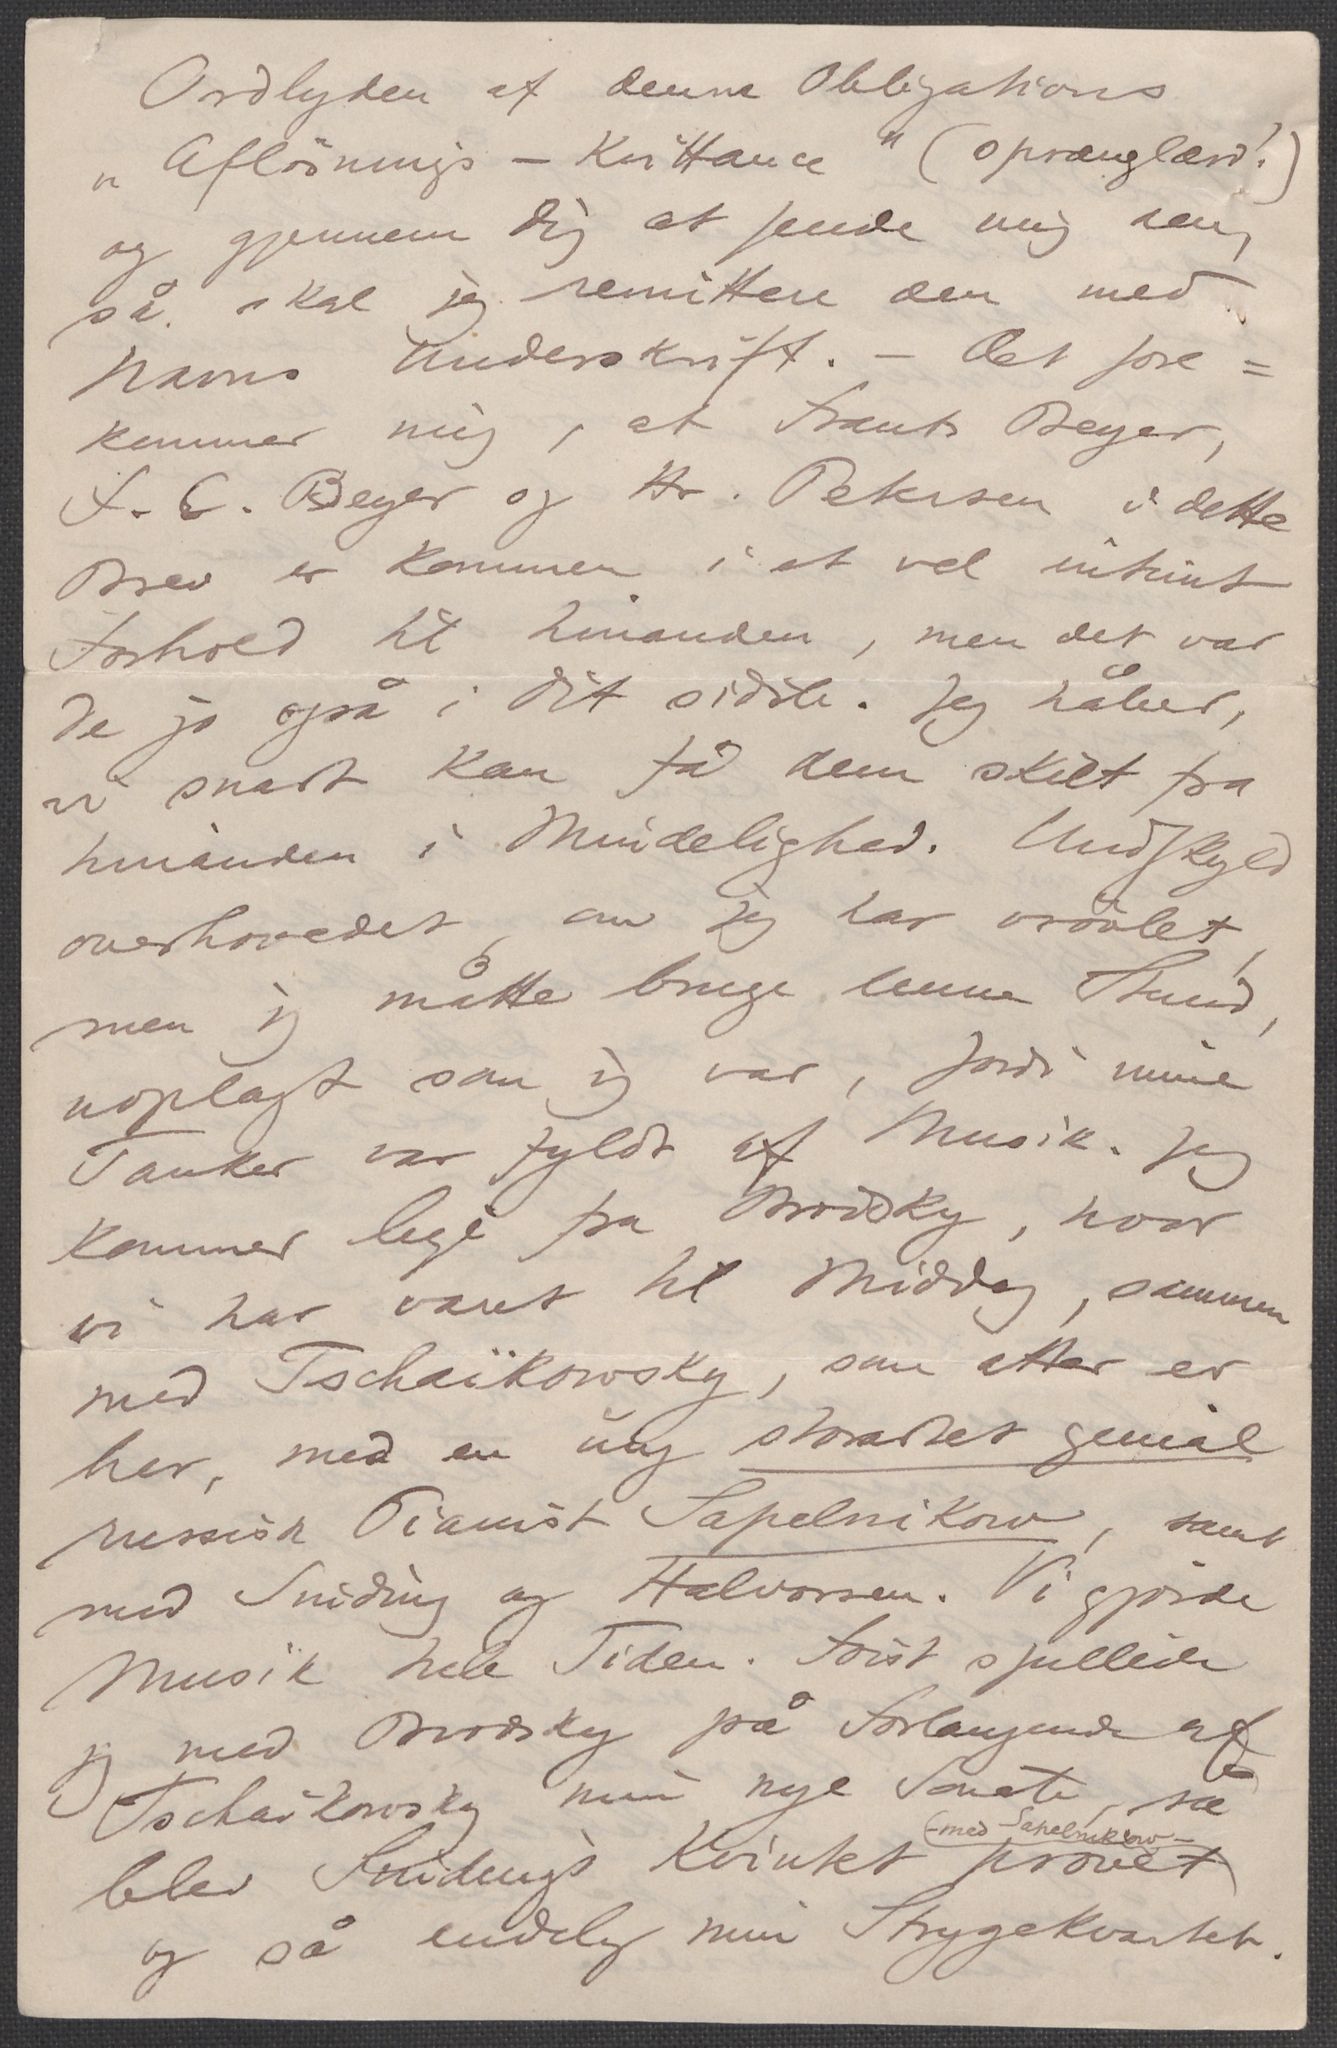 Ordlyden af denne Obligations
„Aflösnings – Kvittance" (
og gjennem dig at sende mig den,
så skal jeg remittere den med
Navns Underskrift. – Det fore=
kommer mig, at Frants Beyer,
F. C. Beyer og Hr. Petersen i dette
Brev er kommen i et vel intimt
Forhold til hinanden, men det var
de jo også i dit sidste. Jeg håber,
vi snart kan få dem skilt fra
hinanden i Mindelighed. Undskyld
overhovedet, om jeg har vrövlet,
men jeg måtte bruge denne Stund,
uoplagt som jeg var, fordi mine
Tanker var fyldt af Musik. Jeg
kommer lige fra Brodsky, hvor
vi har været til Middag, sammen
med Tschaïkowsky, som atter er
her, med en ung storartet genial
russisk Pianist Sapelnikow, samt
med Sinding og Halvorsen. Vi gjorde
Musik hele Tiden. Först spillede
jeg med Brodsky på Forlangende af
Tschaïkowsky min nye Sonate, så
blev Sindings Kvintet (–med Sapelnikow–) prövet
og så endelig min Strygekvartet.